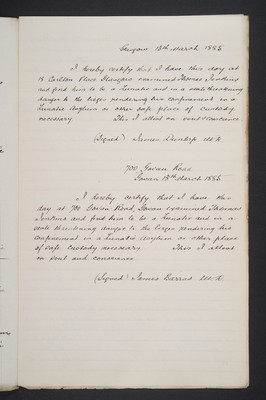 Glasgow 13th March 1885
I hereby certify that I have this day at
18 Carlton Place Glasgow examined Thomas Jenkins
and find him to be a Lunatic and in a state threatening
danger to the lieges rendering his confinement in a
Lunatic Asylum or other safe place of custody
necessary. This I attest on soul & conscience
(Signed) James Dunlop M.D.
700 Govan Road
Govan 13th March 1885
I hereby certify that I have this
day at 700 Govan Road, Govan examined Thomas
Jenkins and find him to be a Lunatic and in a
state threatening danger to the lieges rendering his
confinement in a Lunatic Asylum or other place
of safe custody necessary. This I attest
on soul and conscience
(Signed) James Barras M.D.